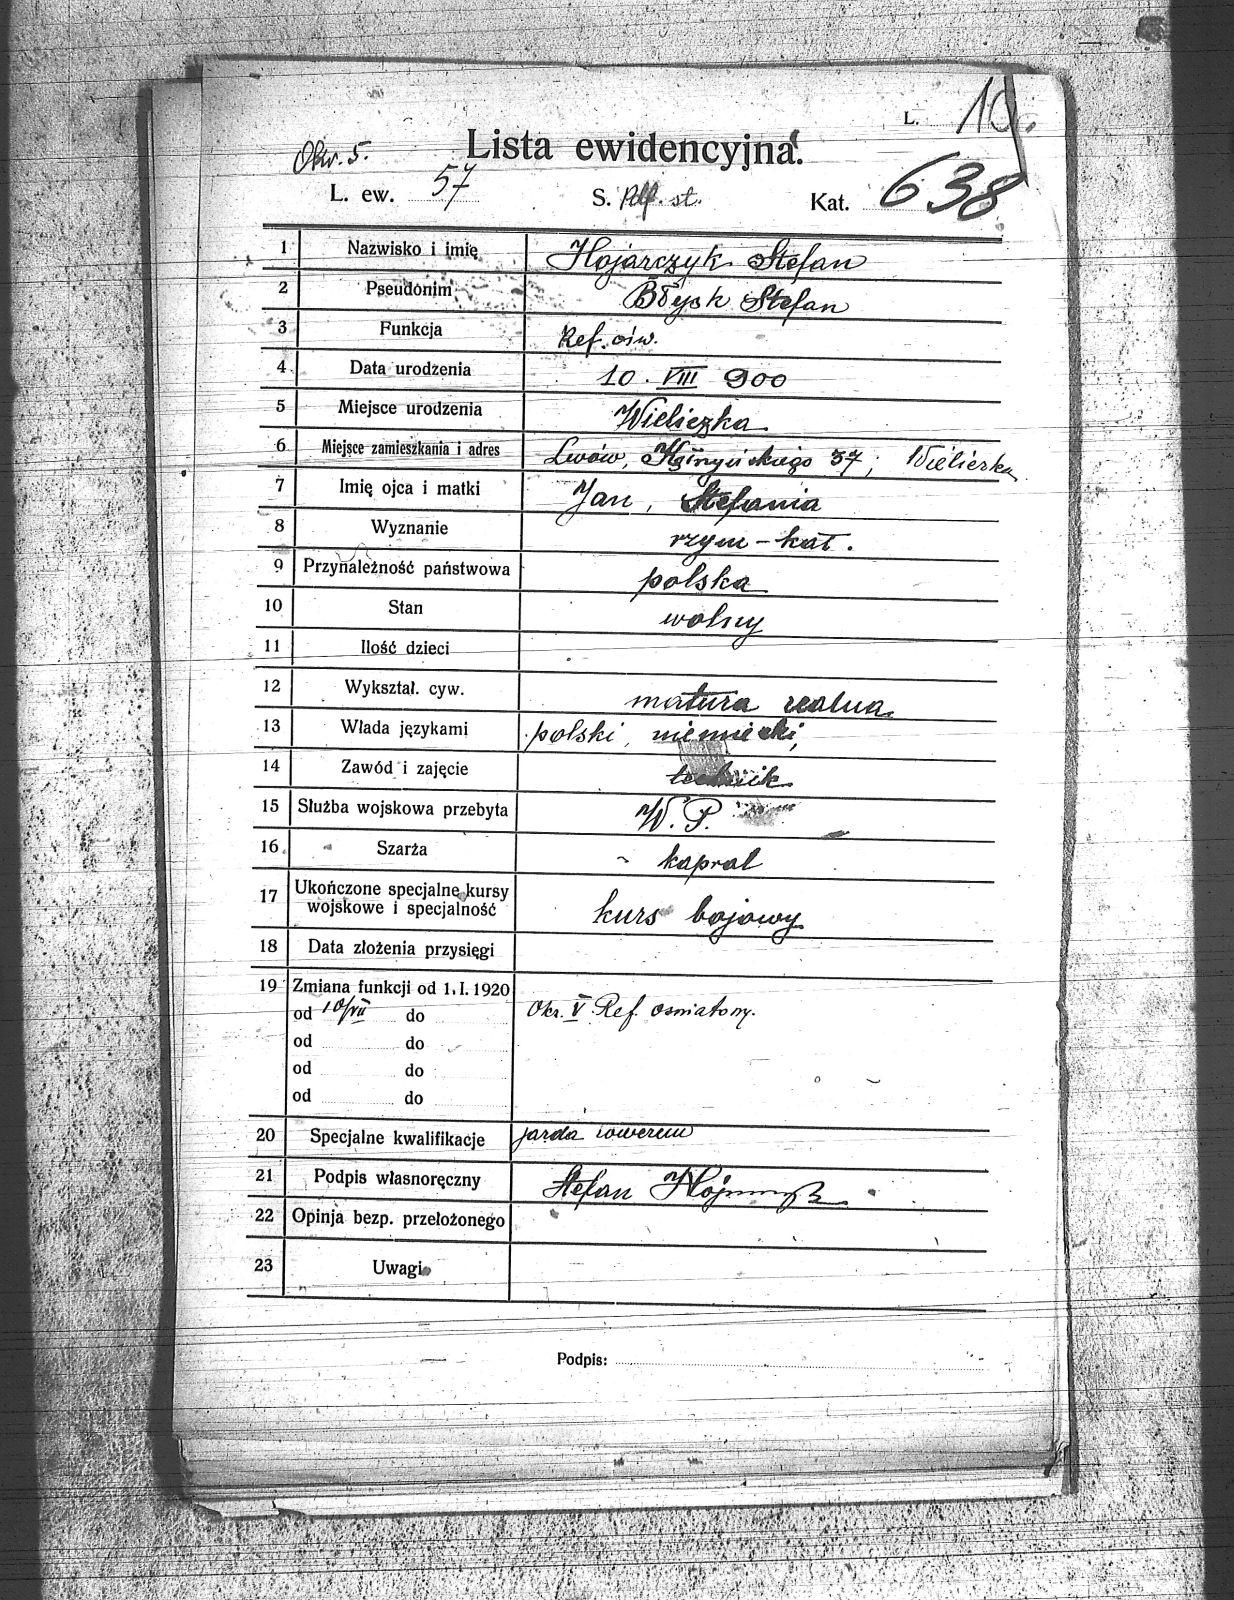 L. 10.
Lista ewidencyjna.
Okr. 5.
L. ew. 57 S. st. Kat. 638
1 Nazwisko i imię Hojarczyk Stefan
2 Pseudonim Błysk Stefan
3 Funkcja Ref. ośw.
4 Data urodzenia 10. VIII 900
5 Miejsce urodzenia Wieliczka
6 Miejsce zamieszkania i adres Lwów, 37; Wieliczka
7 Imię ojca i matki Jan, Stefania
8 Wyznanie rzym-kat.
9 Przynależność państwowa polska
10 Stan wolny
11 Ilość dzieci
12 Wykształ. cyw. matura realna
13 Włada językami polski, niemiecki,
14 Zawód i zajęcie technik
15 Służba wojskowa przebyta W. P.
16 Szarża kapral
17 Ukończone specjalne kursy
wojskowe i specjalność kurs bojowy
18 Data złożenia przysięgi
19 Zmiana funkcji od 1. I. 1920
od 10/VII do Okr. V Ref. oswiatowy.
od do
od do
od do
20 Specjalne kwalifikacje jazda rowerem
21 Podpis własnoręczny Stefan Hojarczyk
22 Opinja bezp. przełożonego
23 Uwagi
Podpis: